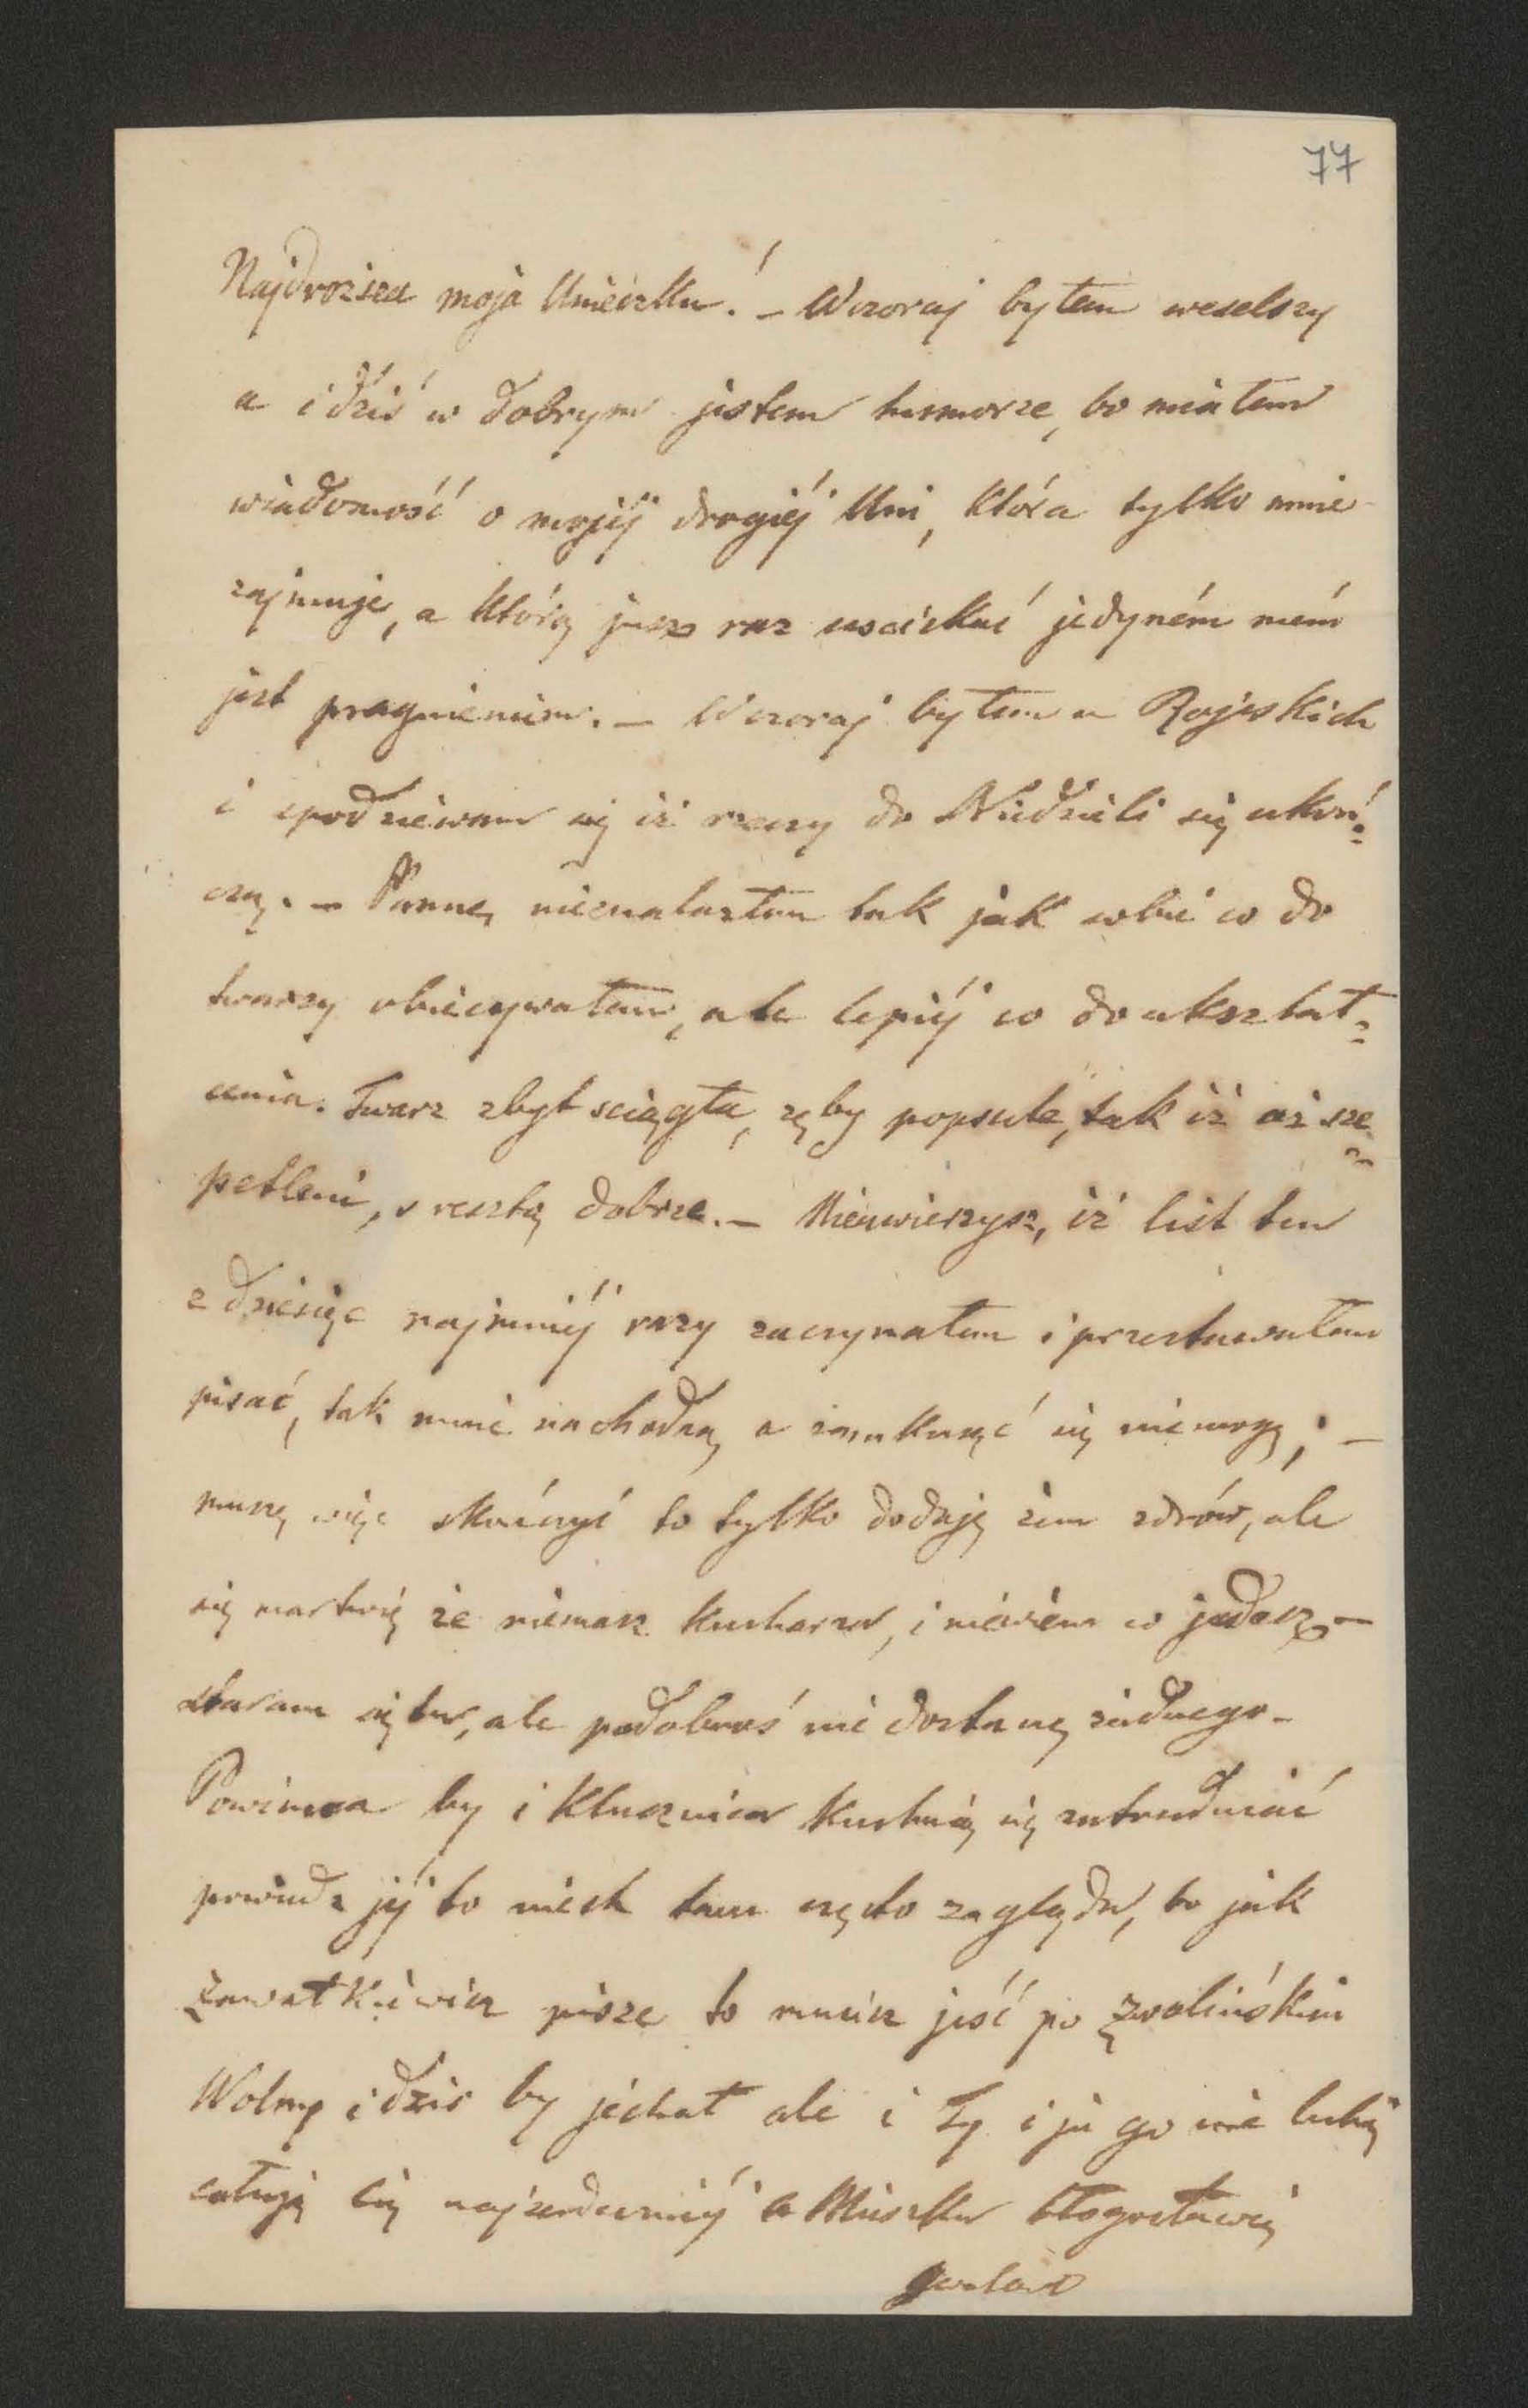 77
Najdrozsza moja Unieczku! – Wczoraj byłem weselszy
a i dziś w dobrym jestem humorze, bo miałem
wiadomość o mojéj drogiéj Uni, która tylko mnie
zajmuje, a którą jusz raz uscickać jedyném mém
jest pragnieniem. – Wczoraj byłem u Rojeskich
i spodziewam się iż rzeczy do Niedzieli się ukoń=
czą. – Pannę nieznalazłem tak jak sobie co do
twarzy obiecywałem, ale lepiéj co do ukształ=
cenia. Twarz zbyt sciągła, zęby popsute, tak iż aż sze=
petleni, z resztą dobrze. – Nieuwierzysz, iż list ten
z dziesięc najmniéj razy zaczynałem i przestawałem
pisać, tak mnie nachodzą a zamknąć się niemogę; –
muszę więc skończyć to tylko dodaję żem zdrów, ale
się martwię że niemasz kucharza, i niewiem co jadasz –
staram się tu, ale podobnoś nie dostanę żadnego –
Powinna by i Klucznica kuchnią się zatrudniać
powiedz jéj to niech tam często zagląda, bo jak
pisze to musisz jeść po Zwolińskim
Wolny i dzis by jechał ale i Ty i ja go nie lubię
całuję Cię najserdeczniéj a Miuszku błogosławię
Gustaw